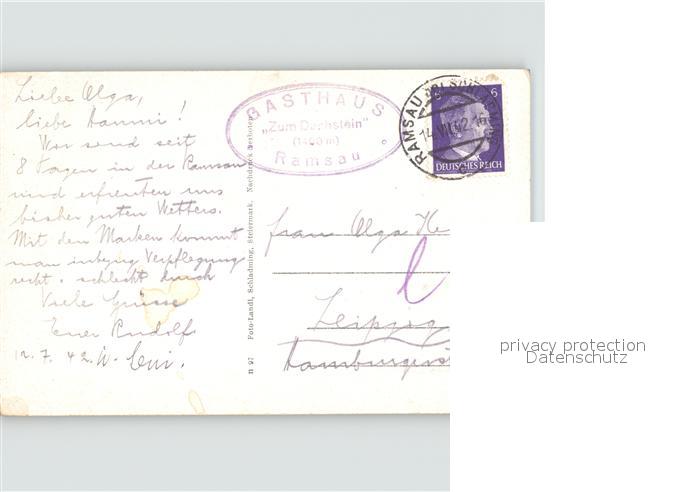 Liebe Olga,
liebe Hanni!
Wir sind seit
8 Tagen in der Ramsau
und erfreuten uns
bisher guten Wetters.
Mit den Marken kommt
man inbezug Verpflegung
recht schlecht durch
Viele Grüsse
Euer Rudolf
12.7.42. u.
GASTHAUS
„Zum Dachstein"
Ramsau
RAMSAU
14.VII.42
6
DEUTSCHES REICH
Frau Olga He
Leipzig
Hamburgerst
m 97 Foto-Landl, Schladming, Steiermark. Nachdruck verboten
privacy protection
Datenschutz